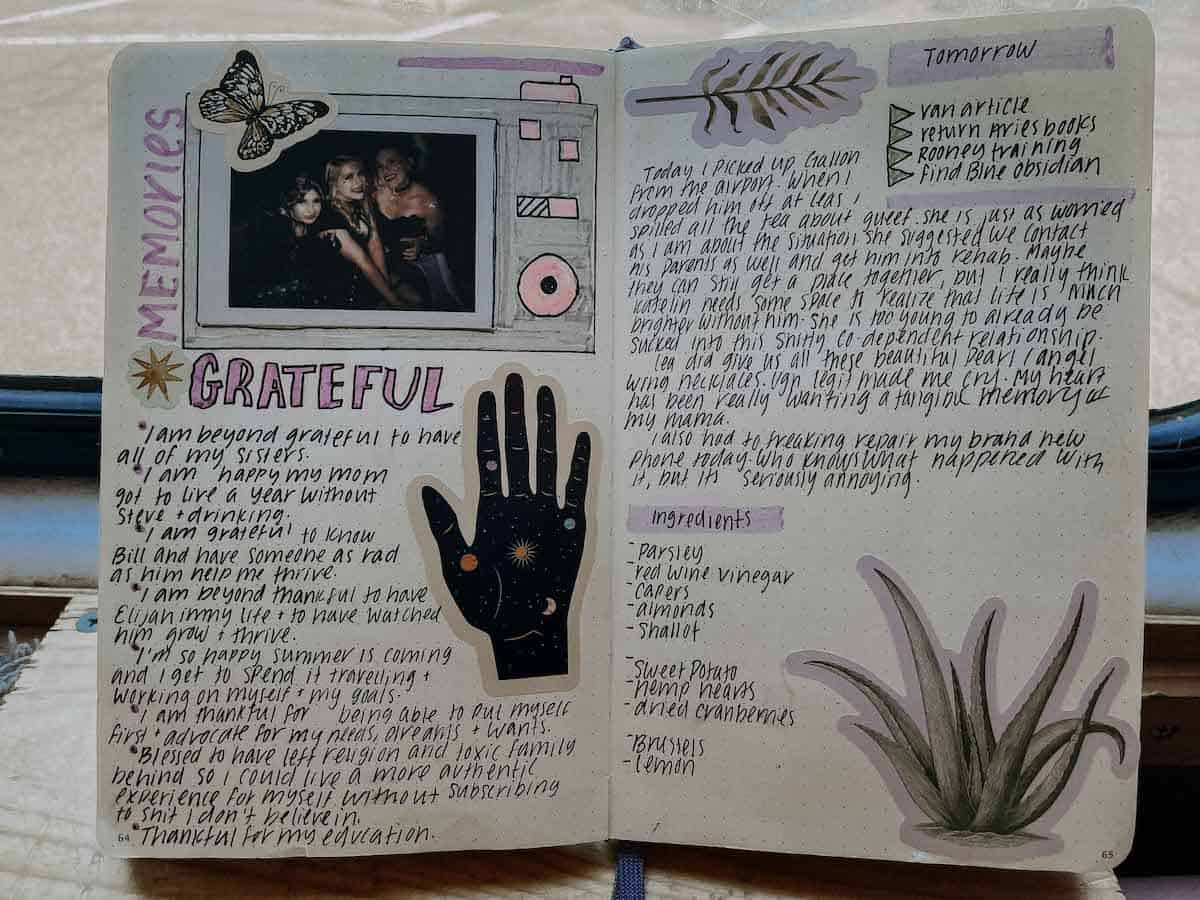 MEMORIES
GRATEFUL
I am beyond grateful to have
all of my sisters.
I am happy my mom
got to live a year without
Steve + drinking.
I am grateful to know
Bill and have someone as rad
as him help me thrive.
I am beyond thankful to have
Elijah in my life + to have watched
him grow + thrive.
I'm so happy summer is coming
and I get to spend it travelling +
working on myself + my goals.
I am thankful for being able to put myself
first + advocate for my needs, dreams + wants.
Blessed to have left religion and toxic family
behind so I could live a more authentic
experience for myself without subscribing
to shit I don't believe in.
Thankful for my education.
64
Tomorrow
van article
return Aries books
Rooney training
find Blue obsidian
Today I picked up Gallon
from the airport. When I
dropped him off at Leas I
spilled all the tea about . she is just as worried
as I am about the situation. She suggested we contact
his parents as well and get him into rehab. Maybe
they can still get a place together, but I really think
Katelin needs some space to realize that life is much
brighter without him. She is too young to already be
sucked into this shitty co-dependent relationship.
Lea did give us all these beautiful pearl/angel
wing necklaces. Ugh legit made me cry. My heart
has been really wanting a tangible memory of
my mama.
I also had to freaking repair my brand new
phone today. Who knows what happened with
it, but its seriously annoying.
Ingredients
- Parsley
- red wine vinegar
- capers
- almonds
- Shallot
- Sweet Potato
- hemp hearts
- dried cranberries
- Brussels
- lemon
65